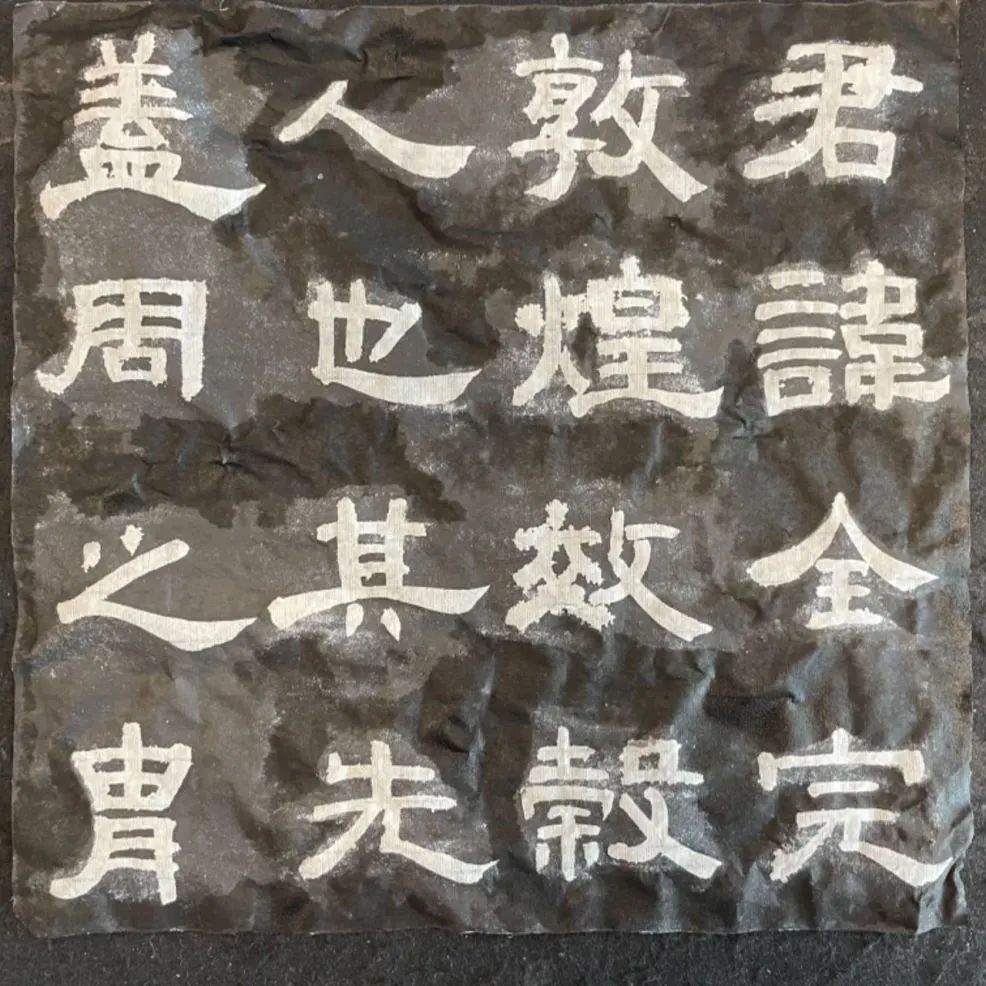 君諱全完
敦煌效穀
人也其先
蓋周之胄